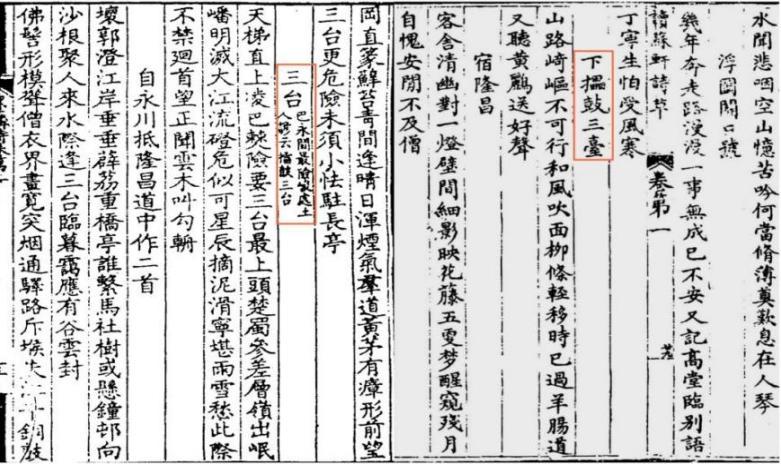 水聞悲咽空山憶苦吟何當脩薄奠歎息在人琴
浮圖關口號
幾年奔走路漫漫一事無成已不安又記高堂臨別語
讀蘇軒詩草 卷第一
丁寧生怕受風寒
下擂鼓三臺
山路崎嶇不可行和風吹面柳條輕移時已過羊腸道
又聽黃鸝送好聲
宿隆昌
客舍清幽對一燈壁間細影映花藤五更梦醒窺殘月
自愧安閒不及僧
岡直篆蘚苔青間逢晴日渾煙氣羣道黃茅有瘴形前望
三台更危險未須小怯駐長亭
三台 巴永間最險處土
人云擂鼓三台
天梯直上凌巴棘險要三台最上頭楚蜀參差層嶺出岷
嶓明滅大江流磴危似可星辰摘泥滑寧堪雨雪愁此際
不禁迴首望正聞雲木叫勾輈
自永川抵隆昌道中作二首
壞郭澄江岸垂垂薜荔重橋亭誰繫馬社樹或懸鐘邨向
沙根聚人來水際逢三台臨暮靄應有谷雲封
佛髻形模聳僧衣界畫寬突烟通驛路斥堠銅鼓